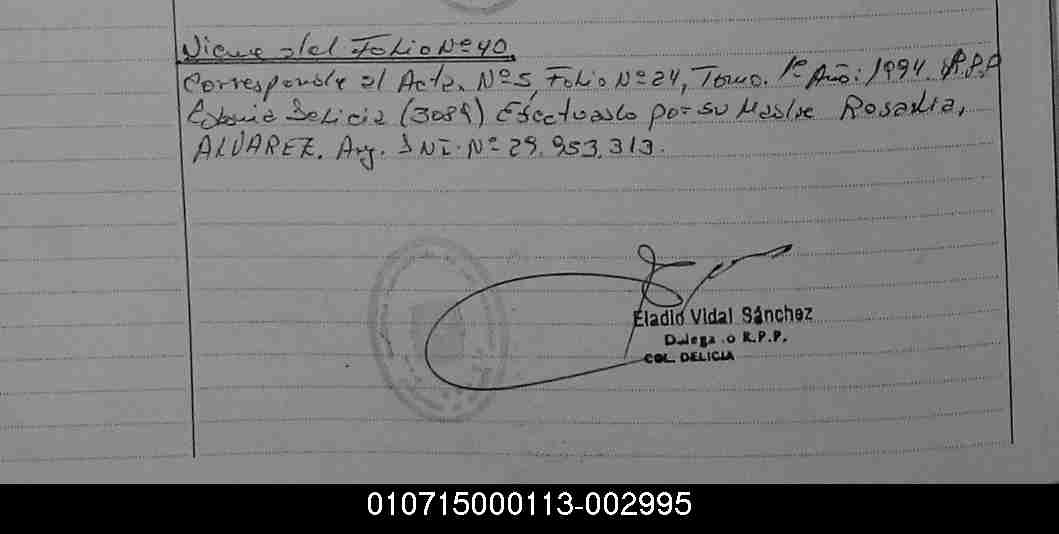 Viene del Folio Nº 40.
Corresponde al Acta. Nº 5, Folio Nº 24, Tomo. 1º Año: 1994. R.P.P
Colonia Delicia (3089) Efectuado por su Madre Rosalia,
ALVAREZ. Arg. DNI. Nº 29.953.313.
Eladio Vidal Sánchez
Delega.o R.P.P.
COL. DELICIA
010715000113-002995